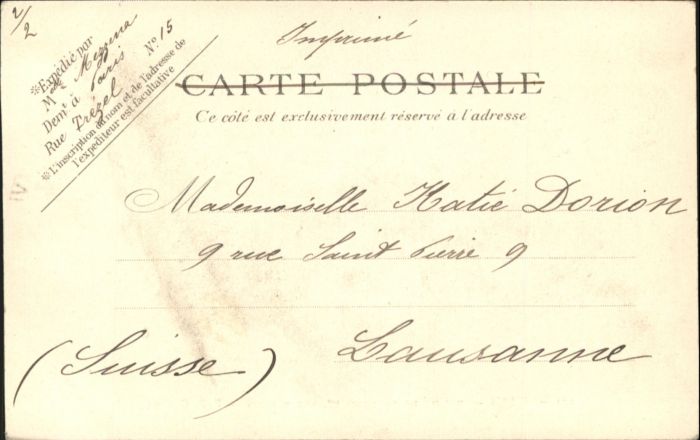 2/2
*Expédié par
M de Mezzena
Demt à Paris
Rue Trézel No 15
*L'inscription du nom et de l'adresse de
l'expéditeur est facultative
Imprimé
CARTE POSTALE
Ce côté est exclusivement réservé à l'adresse
Mademoiselle Katie Dorion
9 rue Saint Pierre 9
(Suisse) Lausanne